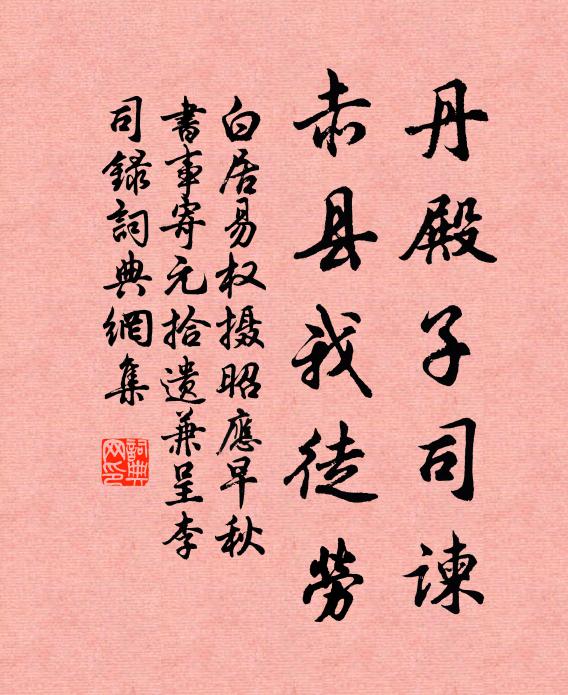 丹殿子司諫
赤县我徒勞
白居易权摄昭應早秋
書事寄元拾遗兼呈李
司録詞典網集
詞典
网印